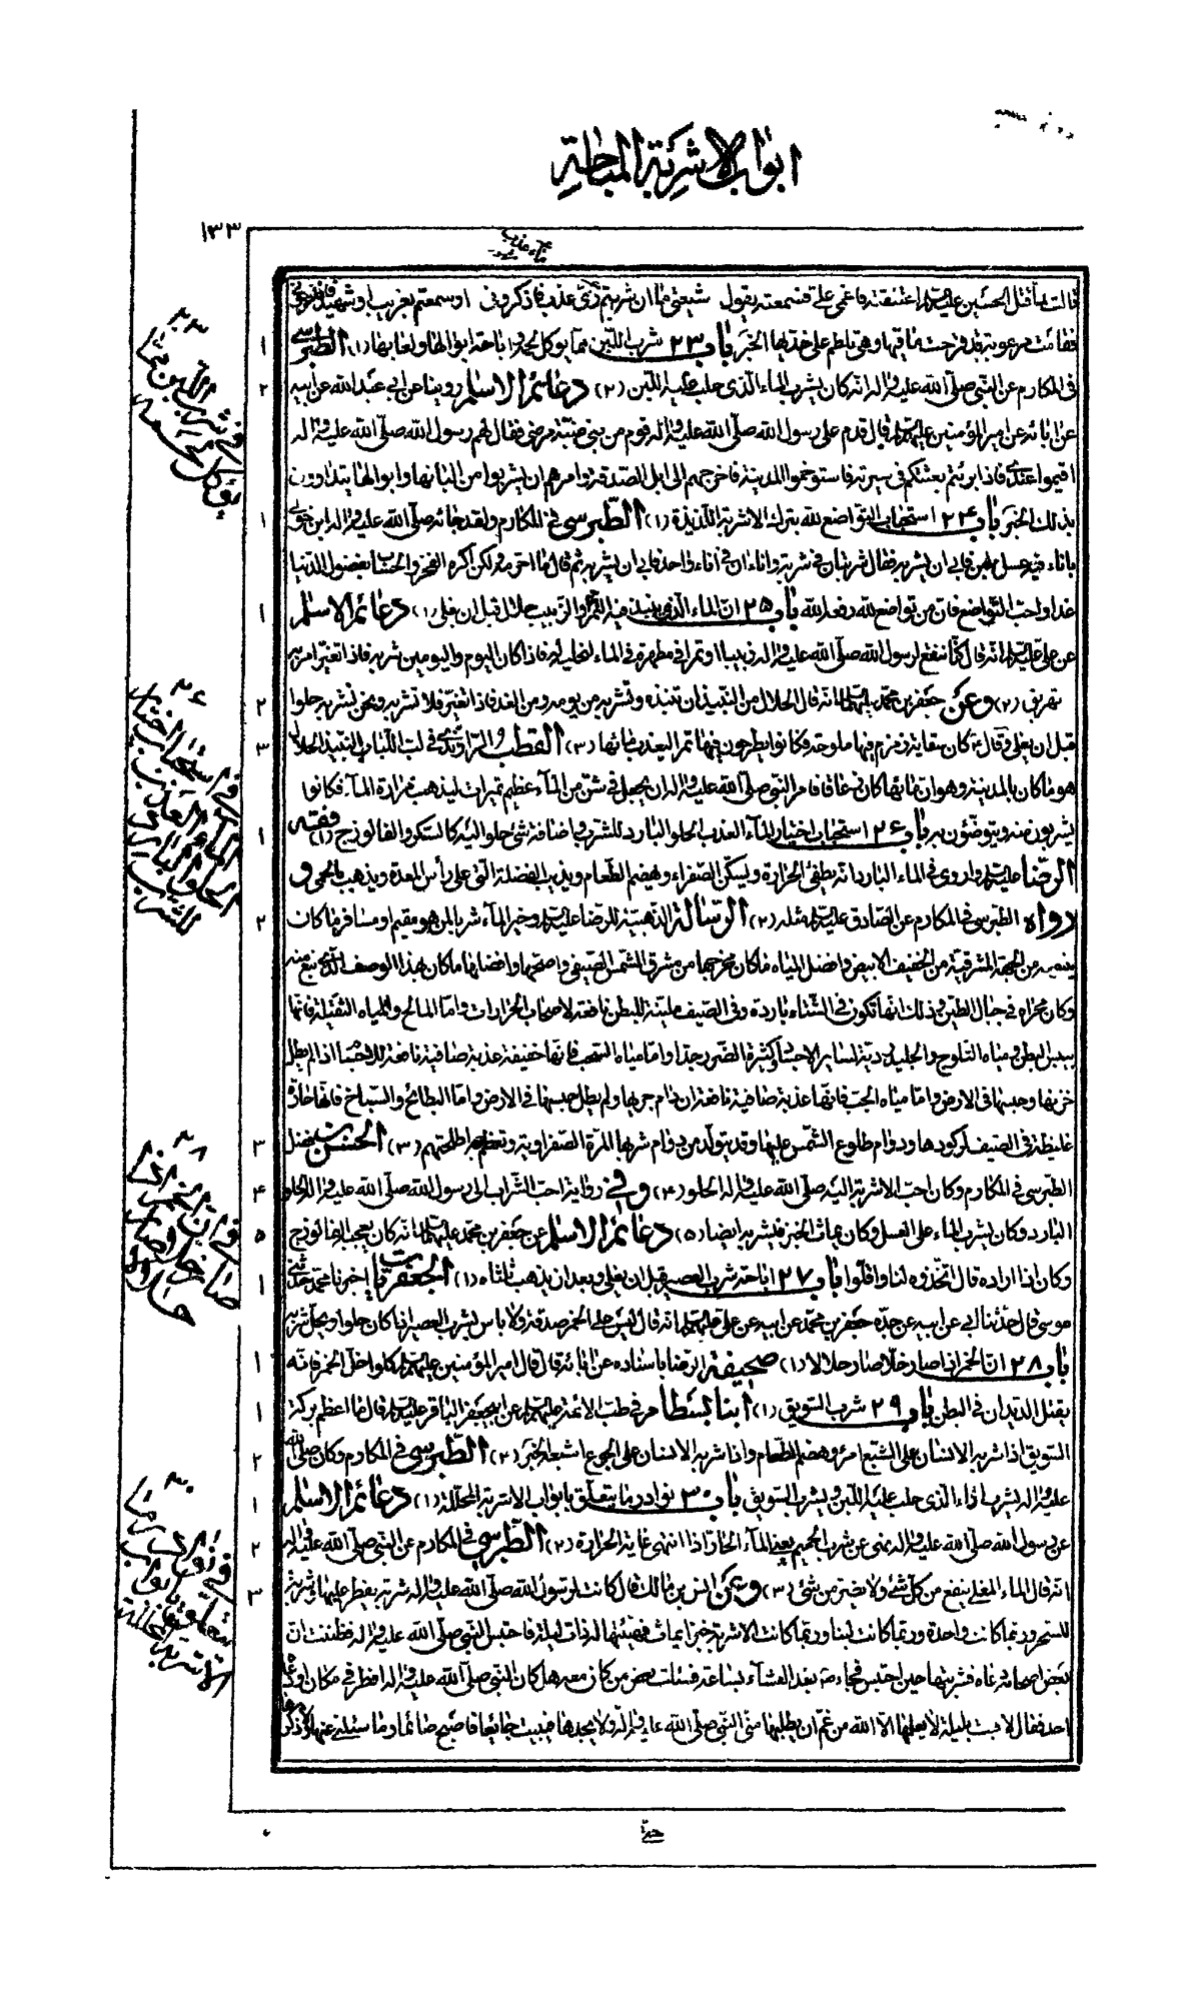 ابواب الاشربة المباحة
١٣٣
ماء عذب
قالت لما قتل الحسين عليه السلم اعتنقته فاغمى على فسمعته يقول شيعتى ما ان شربتم رى عذب فاذكرونى او سمعتم بغريب او شهيد فاندبونى
فقامت مرعوبة قد قرحت ماقيها وهى تلطم على خديها الخبر باب ٢٣ شرب اللبن مما يوكل لحمه و اباحة ابوالها ولعابها (١) الطبرسى
فى المكارم عن النبى صلى الله عليه واله انه كان يشرب الماء الذى حلب عليه اللبن (٢) دعائم الاسلام روينا عن ابى عبد الله عن ابيه
عن ابائه عن امير المؤمنين عليهم السلم انه قال قدم على رسول الله صلى الله عليه واله قوم من بنى ضبة مرضى فقال لهم رسول الله صلى الله عليه واله
اقيموا عندى فاذا برئتم بعثتكم فى سرية فاستوخموا المدينة فاخرجهم الى ابل الصدقة وامرهم ان يشربوا من البانها وابوالها يتداوون
بذلك الخبر باب ٢٤ استحباب التواضع لله بترك الاشربة اللذيذة (١) الطبرسى فى المكارم ولقد جائه صلى الله عليه واله ابن خولى
باناء فيه عسل ولبن فابى ان يشربه فقال شربتان فى شربة واناءان فى اناء واحد فابى ان يشربه ثم قال ما احرمه ولكن اكره الفخر والحساب بفضول الدنيا
غدا واحب التواضع فان من تواضع لله رفعه الله باب ٢٥ ان الماء الذى ينبذ فيه التمر والزبيب حلال قبل ان يغلى (١) دعائم الاسلام
عن على عليه السلم انه قال كنا ننقع لرسول الله صلى الله عليه واله زبيبا او تمرا فى مطهرة فى الماء لنحليه له فاذا كان اليوم واليومين شربه فاذا تغير امر به
فهريق (٢) وعن جعفر بن محمد عليهما السلم انه قال الحلال من النبيذ ان تنبذه وتشربه من يومه ومن الغد فاذا تغير فلا تشربه ونحن نشربه حلوا
قبل ان يغلى وقال ع كان سقاية زمزم فيها ملوحة فكانوا يطرحون فيها تمرا ليعذب مائها (٣) القطب الراوندى فى لب اللباب النبيذ الحلال
هو ما كان بالمدينة وهو ان مائها كان زعاقا فامر النبى صلى الله عليه واله ان يجعل فى شن من الماء عظيم تميرات ليذهب مرارة الماء فكانوا
يشربون منه ويتوضئون به باب ٢٦ استحباب اختيار الماء العذب الحلو البارد للشرب واضافة شئ حلو اليه كالسكر والفالوزج (١) فقه
الرضا عليه السلم واروى فى الماء البارد انه يطفى الحرارة ويسكن الصفراء ويهضم الطعام ويذيب الفضلة التى على رأس المعدة ويذهب بالحمى و
رواه الطبرسى فى المكارم عن الصادق عليه السلم مثله (٢) الرسالة الذهبية للرضا عليه السلم وخير الماء شربا لمن هو مقيم او مسافر ما كان
ينبوعه من الجهة المشرقية من الخفيف الابيض وافضل المياه ما كان مخرجها من مشرق الشمس الصيفى واصحها وافضلها ما كان بهذا الوصف الذى نبع منه
وكان مجراه فى جبال الطين وذلك انها تكون فى الشتاء باردة وفى الصيف ملينة للبطن نافعة لاصحاب الحرارات واما المالح والمياه الثقيلة فانها
ييبس البطن ومياه الثلوج والجليد ردية لساير الاجساد وكثيرة الضرر جدا واما مياه السحب فانها خفيفة عذبة صافية نافعة للاجسام اذا لم يطل
خزنها وحبسها فى الارض واما مياه الجب فانها عذبة صافية نافعة ان دام جريها ولم يطل حبسها فى الارض واما البطائح والسباخ فانها حارة
غليظة فى الصيف لركودها ودوام طلوع الشمس عليها وقد يتولد من دوام شربها المرة الصفراوية وتعظم به اطحلتهم (٣) الحسن بن فضل
الطبرسى فى المكارم وكان احب الاشربة اليه صلى الله عليه واله الحلو (٤) وفى رواية احب الشراب الى رسول الله صلى الله عليه واله الحلو
البارد وكان يشرب الماء على العسل وكان يماث الخبز فيشربه ايضا (٥) دعائم الاسلام عن جعفر بن محمد عليهما السلم انه كان يعجبه الفالوزج
وكان اذا اراده قال اتخذوه لنا واقلوا باب ٢٧ اباحة شرب العصير قبل ان يغلى وبعد ان يذهب ثلثاه (١) الجعفريات اخبرنا محمد حدثنى
موسى قال حدثنا ابى عن ابيه عن جده جعفر بن محمد عن ابيه عن على عليهم السلم انه قال ليس على الخمر صدقة ولا باس بشرب العصير اذا كان حلوا ويحل شربه
باب ٢٨ ان الخمر اذا صار خلا صار حلالا (١) صحيفة الرضا باسناده عن ابائه قال قال امير المؤمنين عليهم السلم كلوا خل الخمر فانه
يقتل الديدان فى البطن باب ٢٩ شرب السويق (١) ابنا بسطام فى طب الائمة عليهم السلم عن ابى جعفر الباقر عليه السلم قال ما اعظم بركة
السويق اذا شربه الانسان على الشبع امرء وهضم الطعام واذا شربه الانسان على الجوع اشبعه الخبر (٢) الطبرسى فى المكارم وكان صلى الله
عليه واله يشرب الماء الذى حلب عليه اللبن ويشرب السويق باب ٣٠ نوادر ما يتعلق بابواب الاشربة المحللة (١) دعائم الاسلام
عن رسول الله صلى الله عليه واله نهى عن شرب الحميم يعنى الماء الحار اذا انتهى غاية الحرارة (٢) الطبرسى فى المكارم عن النبى صلى الله عليه واله
انه قال الماء المغلى ينفع من كل شئ ولا يضر من شئ (٣) وعن انس بن مالك قال كانت لرسول الله صلى الله عليه واله شربة يفطر عليها وشربة
للسحر وربما كانت واحدة وربما كانت لبنا وربما كانت الاشربة خبزا يماث فهيئتها له ذات ليلة فاحتبس النبى صلى الله عليه واله فظننت ان
بعض اصحابه دعاه فشربتها حين احتبس فجاء ص بعد العشاء بساعة فسئلت بعض من كان معه هل كان النبى صلى الله عليه واله افطر فى مكان او دعاه
احد فقال لا فبت بليلة لا يعلمها الا الله من غم ان يطلبها منى النبى صلى الله عليه واله ولا يجدها فيبيت جائعا فاصبح صائما وما سئلنى عنها ولا ذكرها
٢٣
فى شرب اللبن مما
يؤكل لحمه
٢٦
فى استحباب اختيار
الماء العذب
الحلو البارد
للشرب
٢٨
فى ان الخمر اذا
صار خلا صار
حلالا
٣٠
فى نوادر ما
يتعلق بابواب
الاشربة المحللة